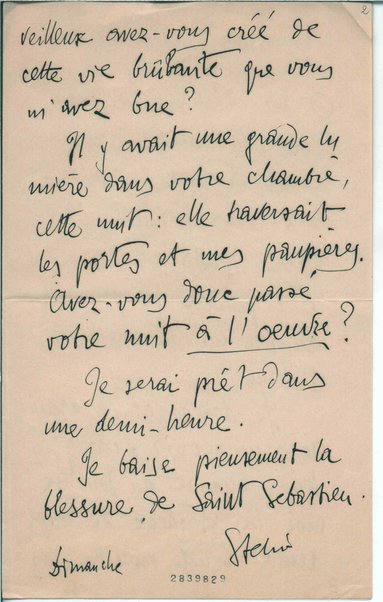 2
veilleux avez-vous créé de
cette vie brûlante que vous
m'avez bue?
Il y avait une grande lu
mière dans votre chambre,
cette nuit: elle traversait
les portes et mes paupières.
Avez-vous donc passé
votre nuit à l'oeuvre?
Je serai prêt dans
une demi-heure.
Je baise pieusement la
blessure de Saint Sebastien.
Stelio
Dimanche
2839829